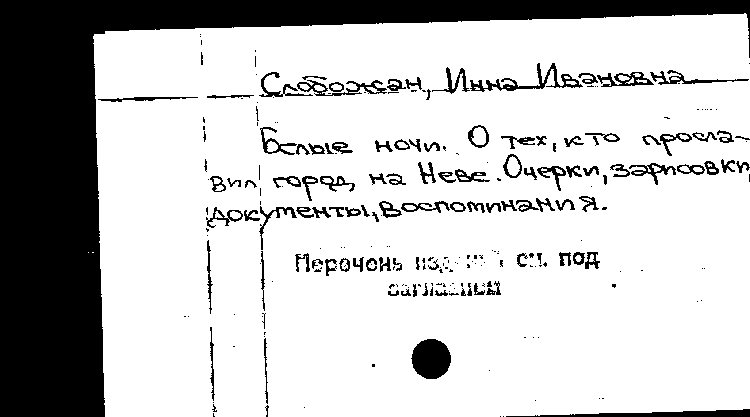 Слобожан, Инна Ивановна.
Белые ночи. О тех, кто просла-
вил город на Неве. Очерки, зарисовки,
документы, воспоминания.
Перечень см. под
заглавием